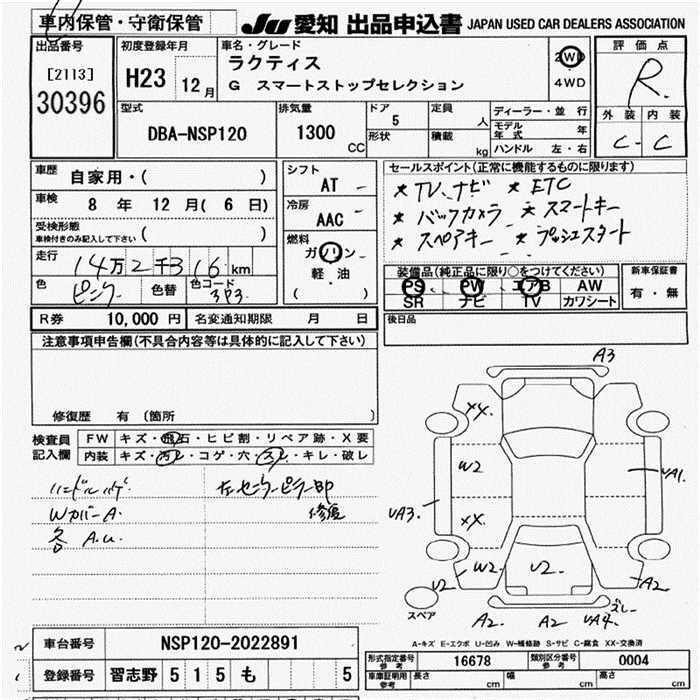 車内保管・守衛保管
JU 愛知 出品申込書 JAPAN USED CAR DEALERS ASSOCIATION
出品番号
[2113]
30396
初度登録年月
H23 12月
車名・グレード
ラクティス
G スマートストップセレクション
2WD
4WD
評価点
R
外装 内装
C - C
型式
DBA-NSP120
排気量
1300 CC
ドア
5
形状
定員
人
積載
kg
ディーラー・並行
モデル年式 年
ハンドル 左・右
車歴
自家用・( )
車検
8 年 12 月( 6 日)
受検形態
車検付きのみ記入して下さい ( )
走行
14万2千316km
色
ピンク
色替
色コード
3P3
シフト
AT -
冷房
AAC -
燃料
ガソリン
軽・油
( )
セールスポイント(正常に機能するものに限ります)
★ TV、ナビ ★ ETC
★ バックカメラ ★ スマートキー
★ スペアキー ★ プッシュスタート
装備品(純正品に限り○をつけてください)
PS PW エアB AW
SR ナビ TV カワシート
新車保証書
有・無
R券 10,000 円 名変通知期限 月 日
後日品
注意事項申告欄(不具合内容等は具体的に記入して下さい)
修復歴 有 (箇所 )
検査員記入欄
FW キズ・飛石・ヒビ割・リペア跡・X要
内装 キズ・汚レ・コゲ・穴・スレ・キレ・破レ
ハンドルハゲ
Wカバー A.
各 A.U.
左センターピラー部
修復
A3
XX.
W2
XX.
UA3.
UA1.
U2
W2.
U2.
A2
スペア
A2.
A2
UA4.
ズレ
A-キズ E-エクボ U-凹み W-補修跡 S-サビ C-腐食 XX-交換済
車台番号 NSP120-2022891
登録番号 習志野 5 1 5 も 5
形式指定番号
参考
16678
類別区分番号
参考
0004
車庫証明用
参考
長さ cm 幅 cm 高さ cm